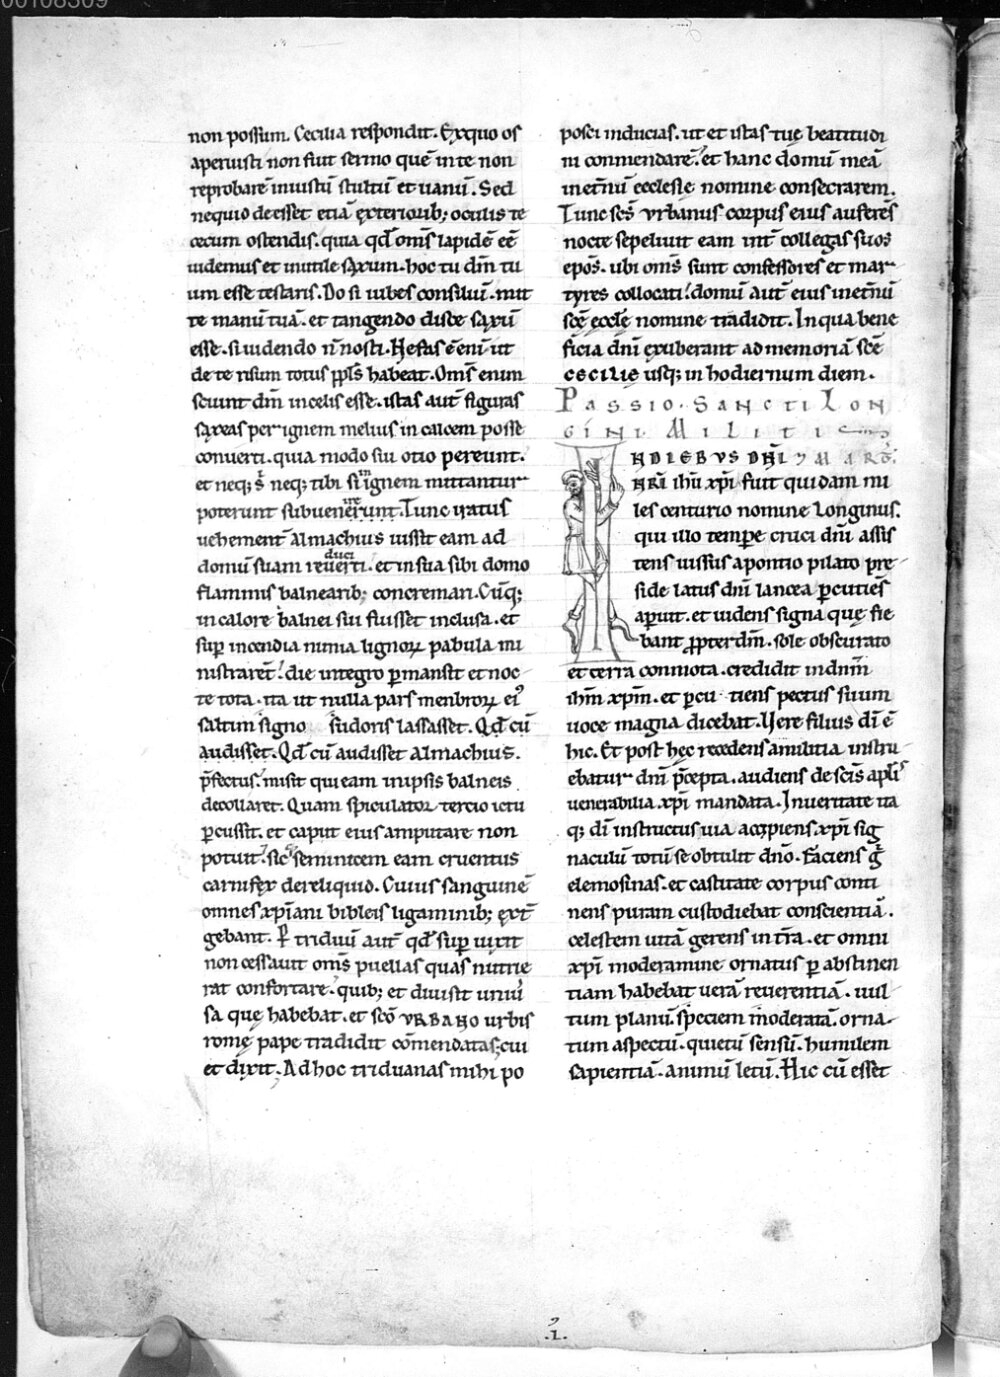 00108309
non possum. Cecilia respondit. Exquo os
aperuisti non fuit sermo quē inte non
reprobarē iniustū stultū et uanū. Sed
nequid deesset etiā exteriorib; oculis te
cęcum ostendis. quia qđ om̄s lapidē eē
uidemus et inutile saxum. hoc tu dm̄ tu
um esse testaris. Do si iubes consiliū. mit
te manū tuā. et tangendo disce saxū
esse. si uidendo n̄ nosti. Nefas ē eni ut
de te risum totus ppl̄s habeat. Om̄s enim
sciunt dm̄ incelis esse. istas aut̄ figuras
saxeas per ignem melius in calcem posse
conuerti. quia modo sui otio pereunt.
et neq; s̄ neq; tibi si inignem mittantur
poterunt subuenerunt. Tunc iratus
uehement̄ almachius iussit eam ad
domū suam reuerti. et insua sibi domo
flammis balnearib; concremari. Cūq;
incalore balnei sui fuisset inclusa. et
sup incendia nimia lignoꝝ pabula mi
nistrarent̄. die integro ꝑmansit et noc
te tota. ita ut nulla pars menbroꝝ ei᾽
saltim signo sudoris lassasset. Qđ cū
audisset. Qđ cū audisset almachius.
p̄fectus. misit qui eam inipsis balneis
decollaret. Quam spiculator tercio ictu
ꝑcussit. et caput eius amputare non
potuit. sic seminicem eam cruentus
carnifex dereliquid. Cuius sanguinē
omnes xp̄iani bibleis ligaminib; ext̄
gebant. ꝑ triduū aut̄ qđ sup uixit
non cessauit om̄s puellas quas nutrie
rat confortare. quib; et diuisit uniū
sa que habebat. et sc̄o VRBANO urbis
rome pape tradidit cōmendatas; cui
et dixit. Ad hoc triduanas mihi po
posci inducias. ut et istas tuę beatitudi
ni conmendarē. et hanc domū meā
inet̄nū ecclesię nomine consecrarem.
Tunc sc̄s vrbanus corpus eius auferēs
nocte sepeliuit eam int̄ collegas suos
ep̄os. ubi om̄s sunt confessores et mar
tyres collocati. domū aut̄ eius inet̄nū
sc̄ę eccl̄ę nomine tradidit. In qua bene
ficia dn̄i exuberant ad memoriā sc̄ę
CECILIE usq; in hodiernum diem.
PASSIO SANCTI LON
GINI MILITIS
INDIEBVS DN̄I
NR̄I ihū xp̄i fuit quidam mi
les centurio nomine Longinus.
qui illo tempe cruci dn̄i assis
tens iussus apontio pilato pre
side latus dn̄i lancea ꝑcutiēs
aꝑuit. et uidens signa quę fie
bant ꝓpter dm̄. sole obscurato
et terra conmota. credidit indnm̄
ihm̄ xp̄m. et ꝑcutiens pectus suum
uoce magna dicebat. Vere filius dī ē
hic. Et post hęc recedens amilitia instru
ebatur dn̄i p̄cepta. audiens de sc̄is apl̄is
uenerabilia xp̄i mandata. In ueritate ita
q; dī instructus uia accipiens xp̄i sig
naculū totū se obtulit dn̄o. Faciens
elemosinas. et castitate corpus conti
nens puram custodiebat conscientiā.
celestem uitā gerens in tr̄a. et omni
xp̄i moderamine ornatus ꝑ abstinen
tiam habebat uerā reuerentiā. uul
tum planū. speciem moderatā. orna
tum aspectū. quietū sensū. humilem
sapientiā. animū letū. Hic cū esset
.I.